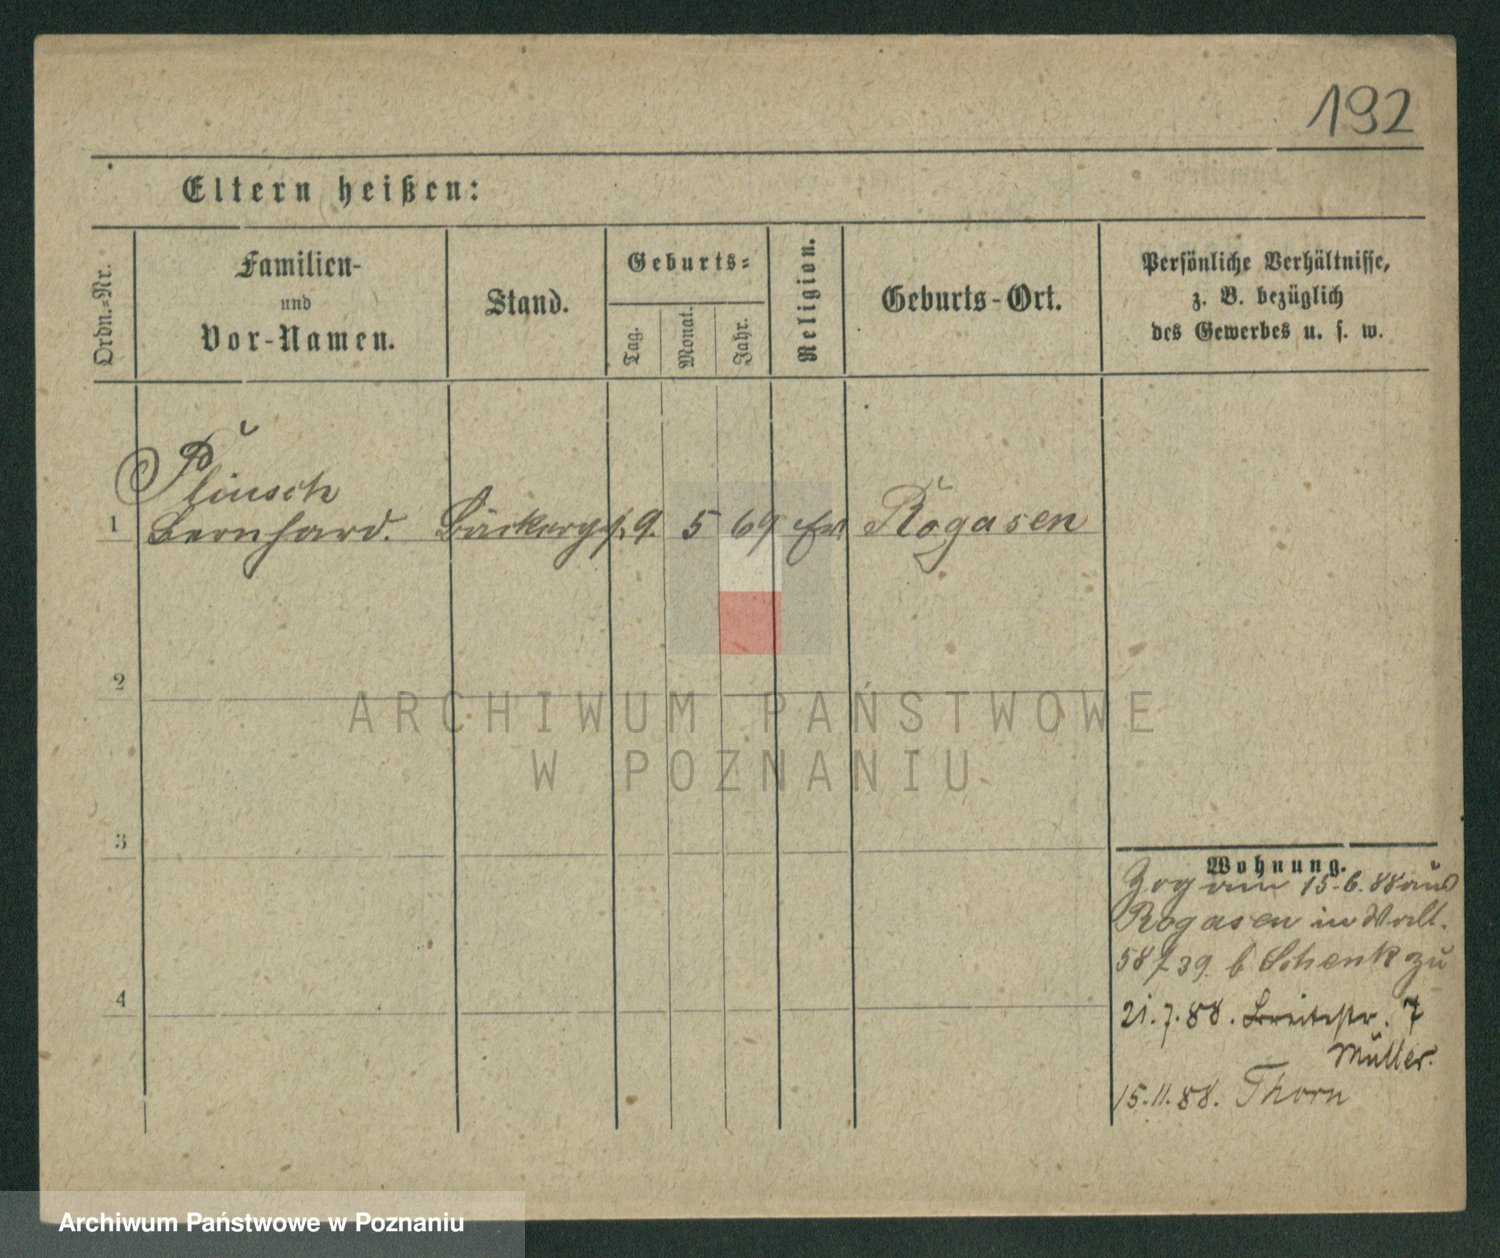 192
Eltern heißen:
Ordn.-Nr.
Familien-
und
Vor-Namen.
Stand.
Geburts-
Tag.
Monat.
Jahr.
Religion.
Geburts-Ort.
Persönliche Verhältnisse,
z. B. bezüglich
des Gewerbes u. s. w.
Plinsch
1 Bernhard. Bäckergs. 9. 5 69 Rogasen
2
3
4
Wohnung.
Zog am 15.6.88 aus
Rogasen in Wall.
58/39 b Schenk zu
21.7.88. Breitestr. 7
Müller.
15.11.88. Thorn
ARCHIWUM PAŃSTWOWE
W POZNANIU
Archiwum Państwowe w Poznaniu